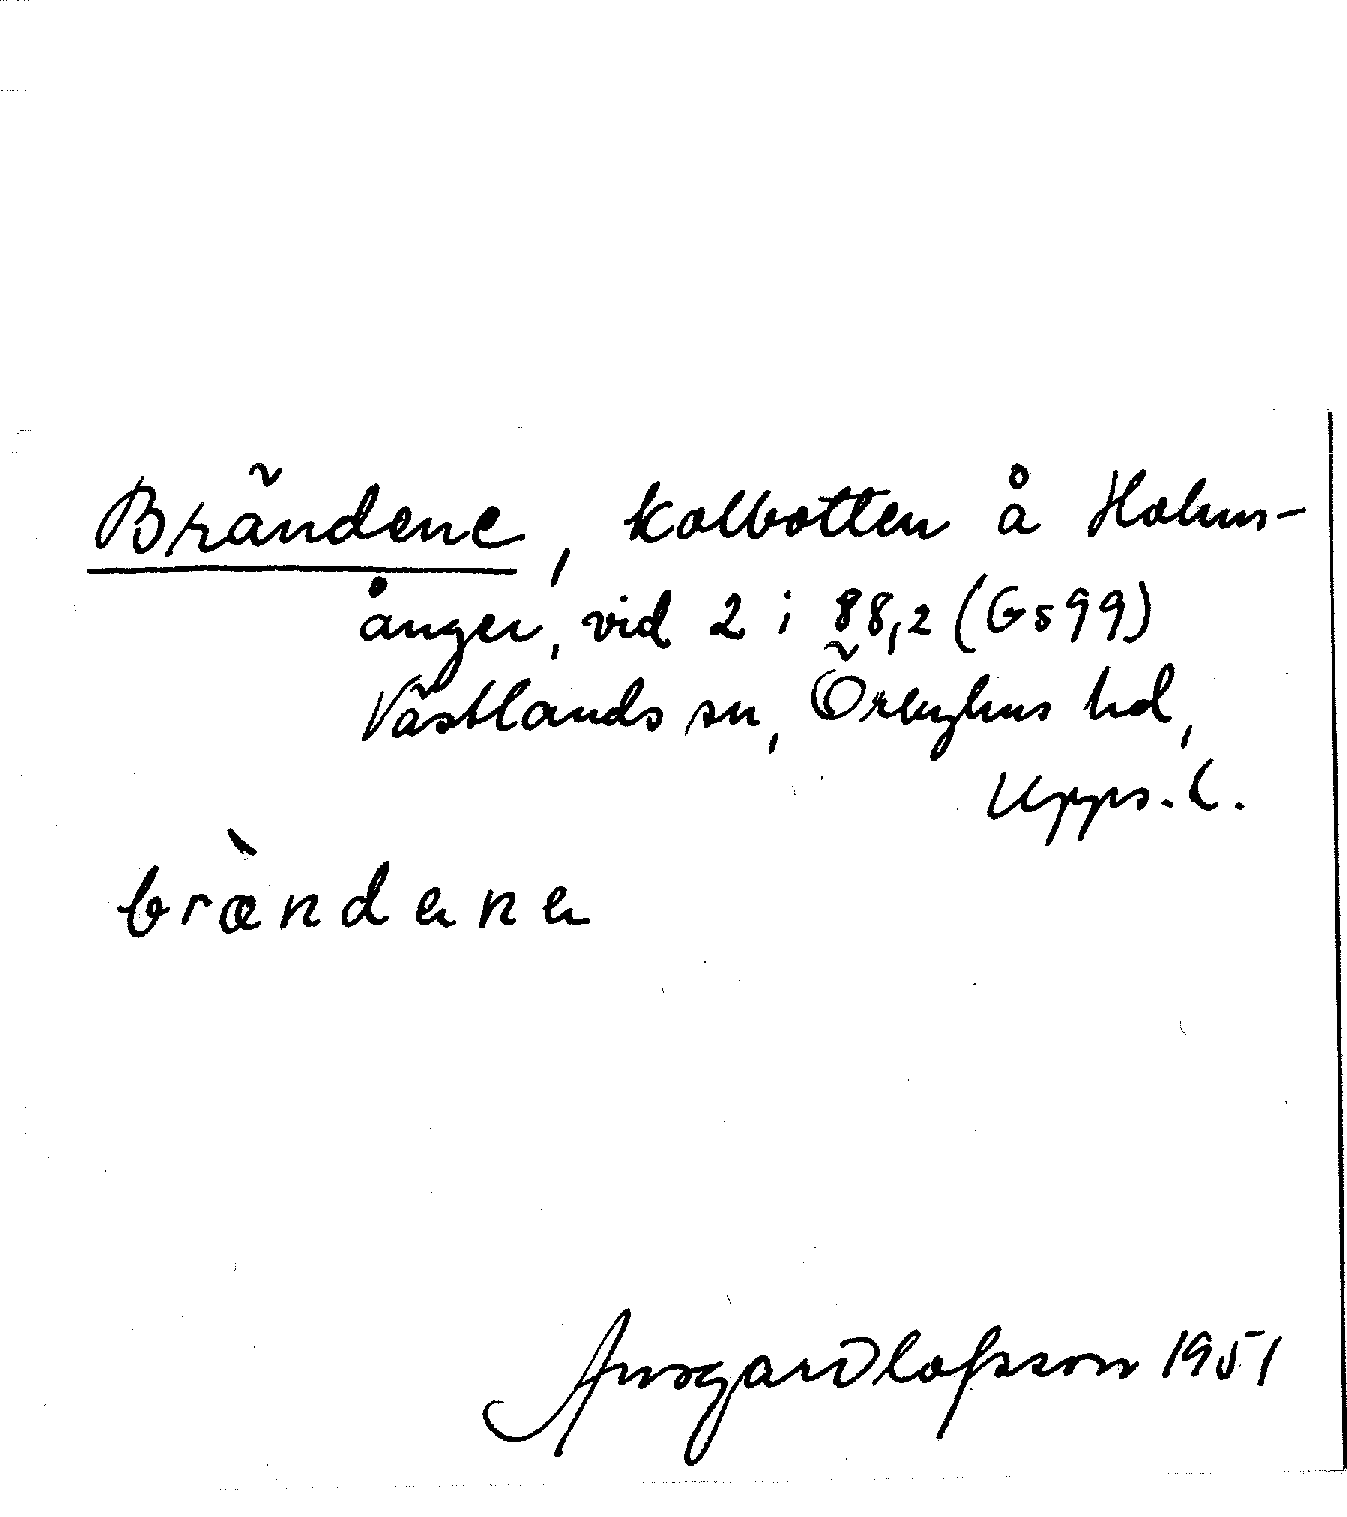 Brändene, kolbotten å Holms-
ånger, vid 2 i 88,2 (Gs 99)
Västlands sn, Örbyhus hd,
Upps. l.
bræ̀ndena
Ansgar Olofsson 1951